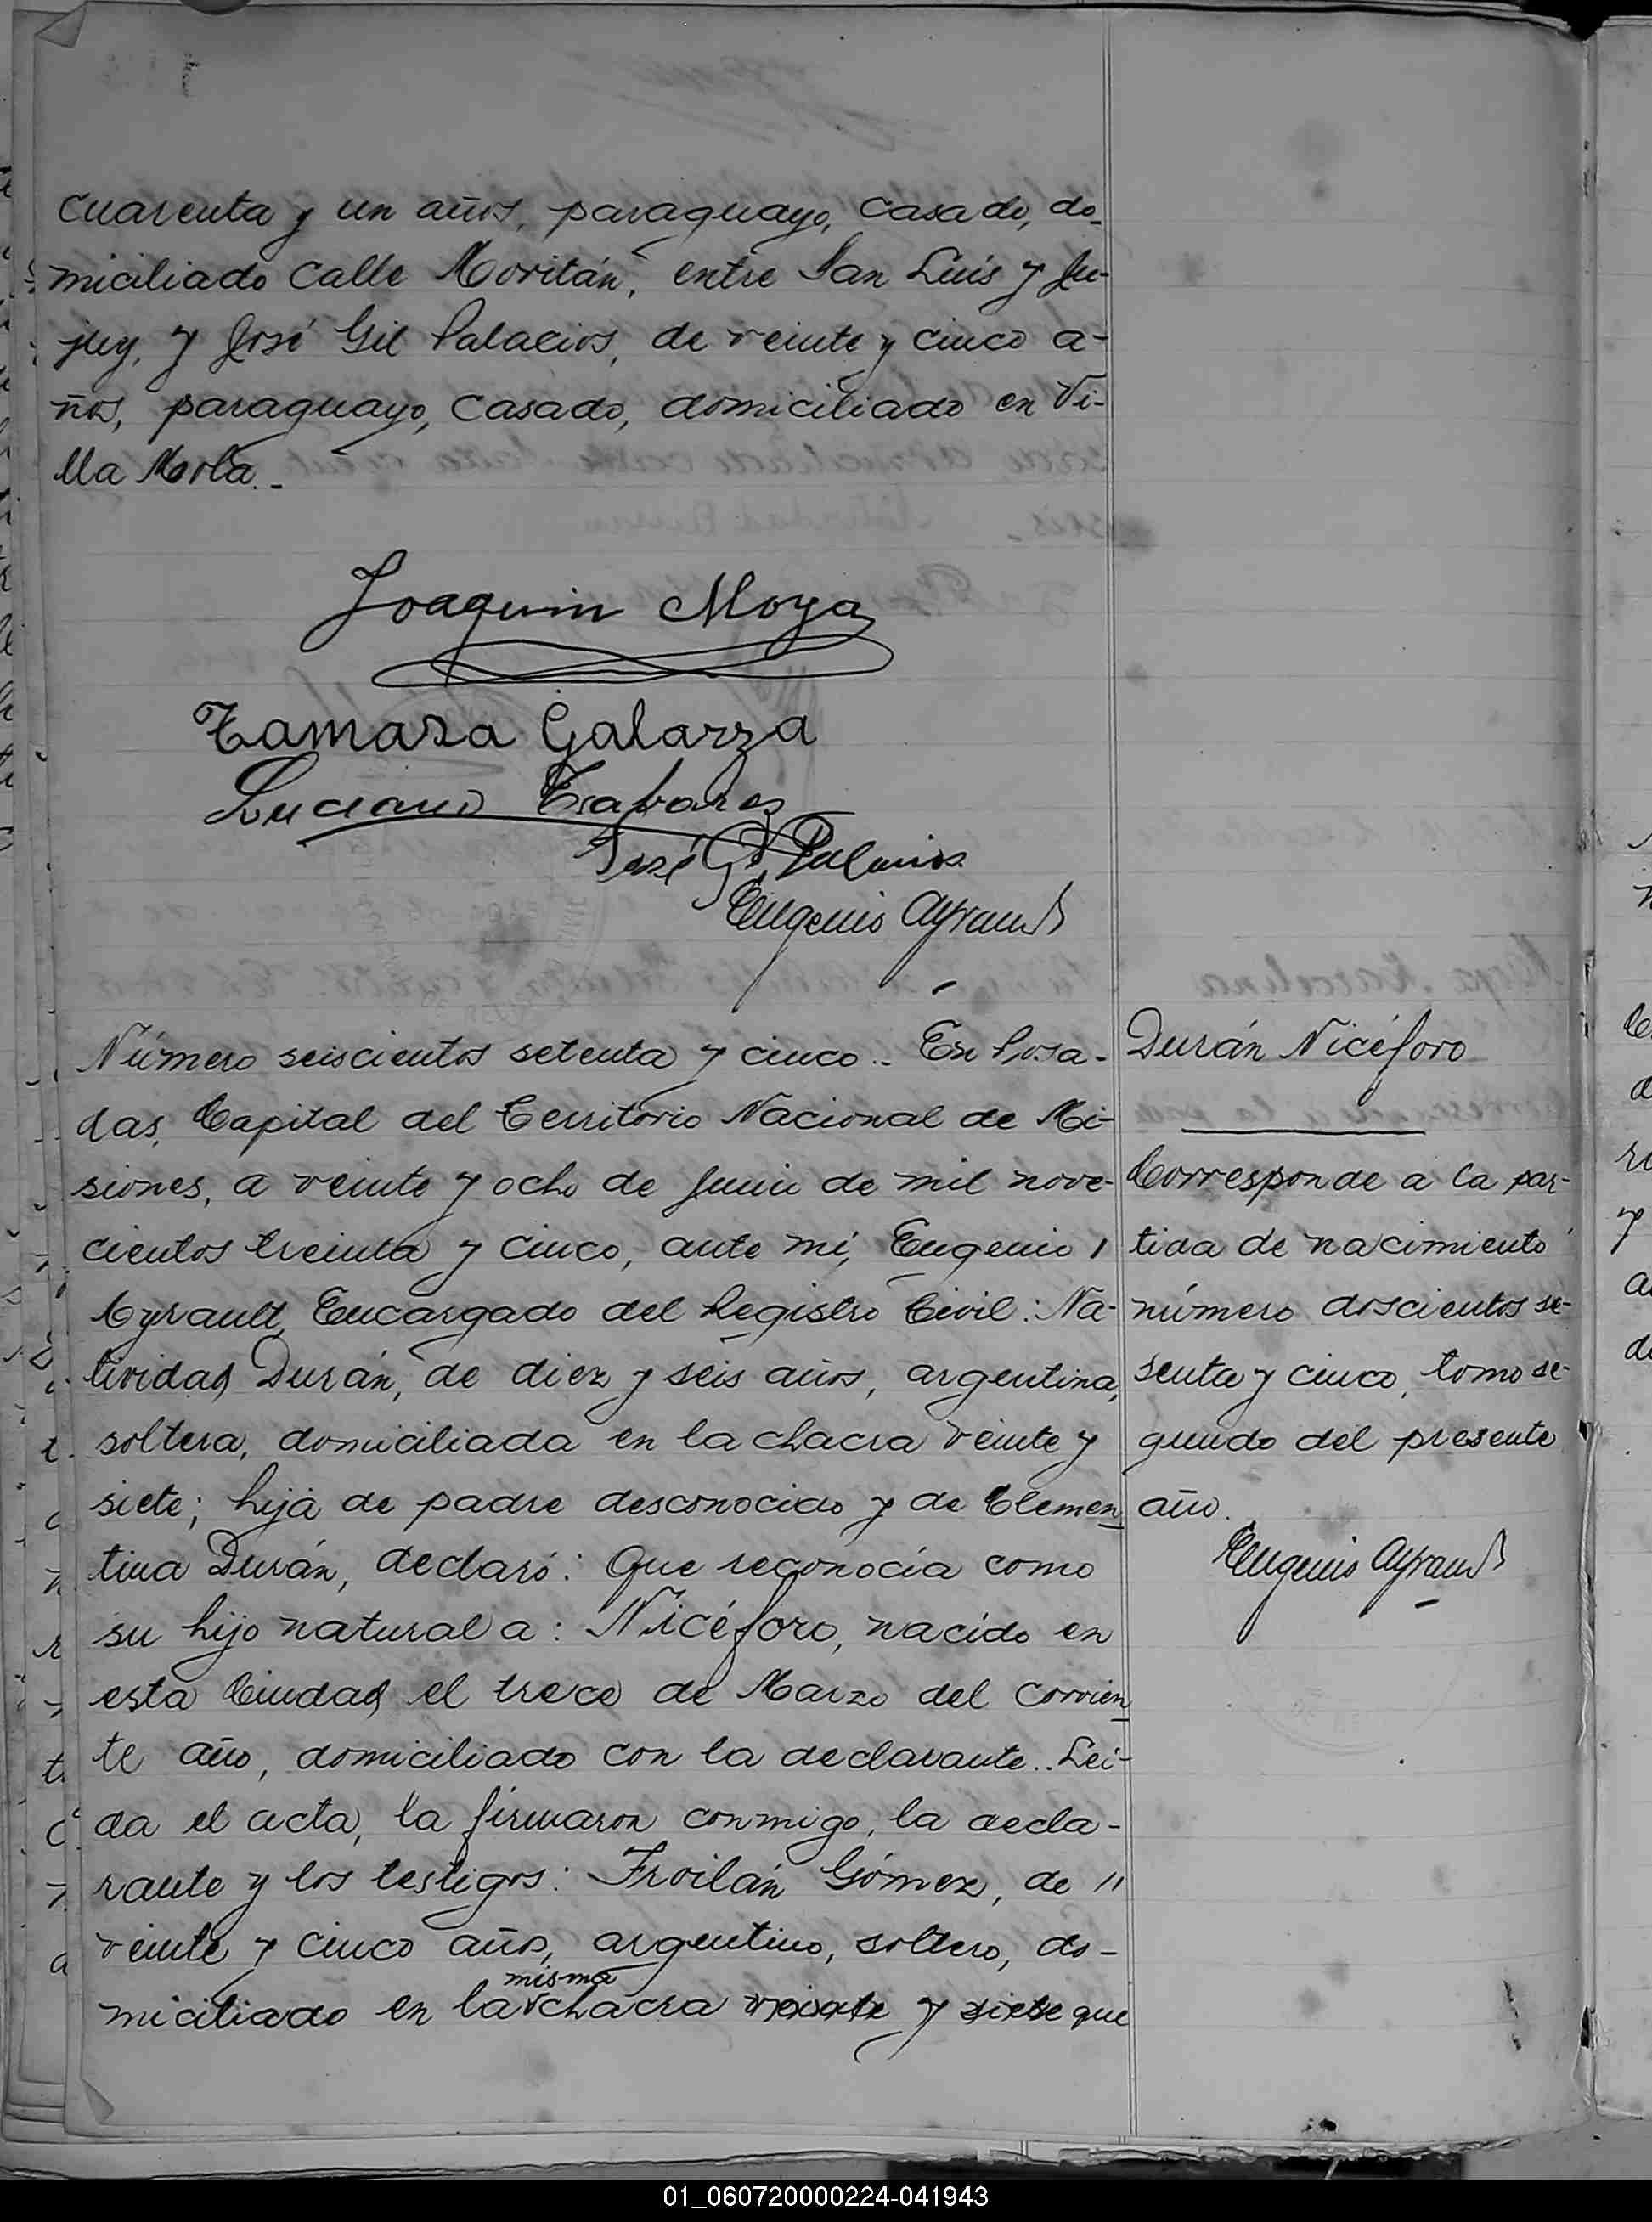 cuarenta y un años, paraguayo, casado, do-
miciliado calle Moritán, entre San Luis y Ju-
juy, y José Gil Palacios, de veinte y cinco a-
ños, paraguayo, casado, domiciliado en Vi-
lla Mola.-
Joaquin Moya
Tamasa Galarza
Luciano
José G. Palacios
Eugenio Ayrault
Número seiscientos setenta y cinco.- En Posa-
das, Capital del Territorio Nacional de Mi-
siones, a veinte y ocho de Junio de mil nove-
cientos treinta y cinco, ante mi, Eugenio
Ayrault, Encargado del Registro Civil: Na-
tividad Durán, de diez y seis años, argentina,
soltera, domiciliada en la chacra veinte y
siete; hija de padre desconocido y de Clemen-
tina Durán, declaró: Que reconocía como
su hijo natural a: Nicéforo, nacido en
esta Ciudad el trece de Marzo del corrien-
te año, domiciliado con la declarante.. Leí-
da el acta, la firmaron conmigo, la decla-
rante y los testigos: Froilán Gómez, de "
veinte y cinco años, argentino, soltero, do-
misma
miciliado en la chacra veinte y siete que
Durán Nicéforo
Corresponde a la par-
tida de nacimiento
número doscientos se-
senta y cinco, tomo se-
gundo del presente
año.
Eugenio Ayrault
01_060720000224-041943